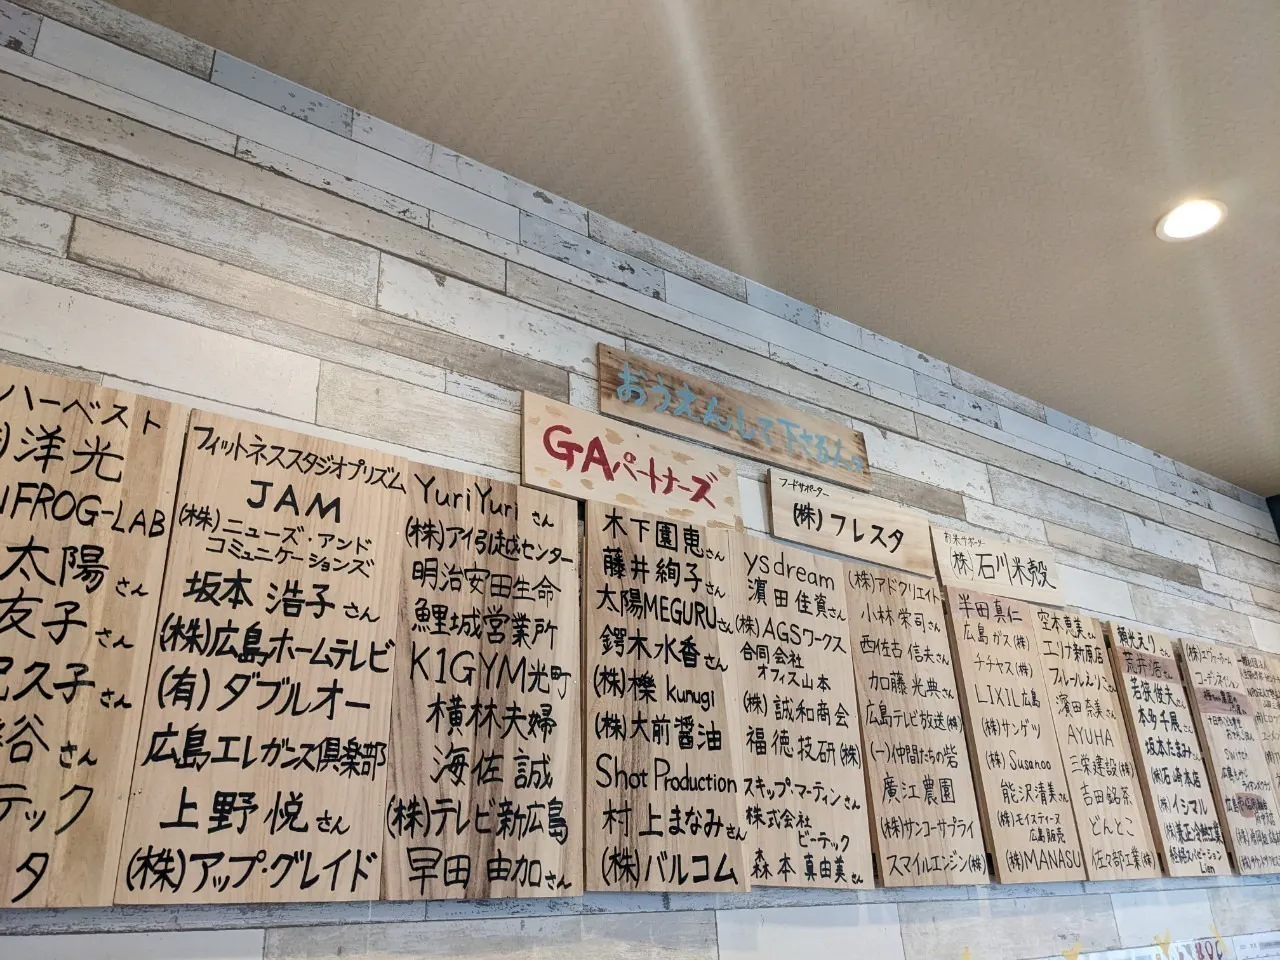 おうえんして下さる
GAパートナーズ
フードサポーター
(株)フレスタ
お米サポーター
(株)石川米穀
ハーベスト
洋光
FROG-LAB
太陽さん
友子さん
久子さん
谷さん
テック
タ
フィットネススタジオプリズム
JAM
(株)ニューズ・アンド
コミュニケーションズ
坂本 浩子さん
(株)広島ホームテレビ
(有)ダブルオー
広島エレガンス倶楽部
上野 悦さん
(株)アップ・グレイド
YuriYuriさん
(株)アイ引越センター
明治安田生命
鯉城営業所
K1GYM光町
横林夫婦
海佐 誠
(株)テレビ新広島
早田 由加さん
木下園恵さん
藤井絢子さん
太陽MEGURUさん
鍔木水香さん
(株)櫟 kunugi
(株)大前醤油
Shot Production
村上まなみさん
(株)バルコム
ysdream
濱田佳資さん
(株)AGSワークス
合同会社
オフィス山本
(株)誠和商会
福徳技研(株)
スキップ・マーティンさん
株式会社
ビーテック
森本 真由美さん
(株)アドクリエイト
小林栄司さん
西佐古 信夫さん
加藤光典さん
広島テレビ放送(株)
(一)仲間たちの砦
廣江農園
(株)サンコーサプライ
スマイルエンジン(株)
半田真仁
広島ガス(株)
チチヤス(株)
LIXIL広島
(株)サンゲツ
(株)Susanoo
能沢清美さん
(株)モイスティーヌ
広島販売
(株)MANASU
空本恵美さん
エリア新原店
フィールえりこさん
濱田奈美さん
AYUHA
三栄建設(株)
吉田銘茶
どんとこ
(佐々部工業(株)
頼光えりさん
荒井浩さん
若狭俊夫さん
本多千展さん
坂本たまみさん
(株)石崎本店
(株)イシマル
Lien